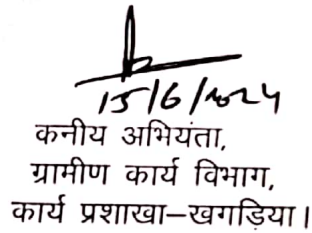 15/6/2024
कनीय अभियंता,
ग्रामीण कार्य विभाग,
कार्य प्रशाखा–खगड़िया।